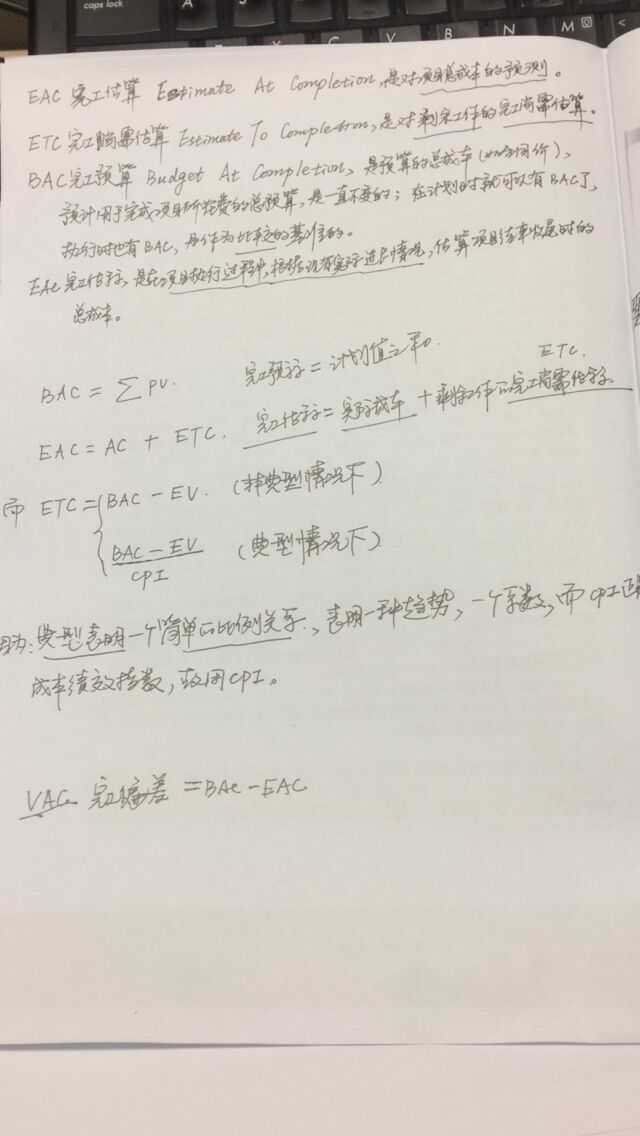 caps lock
A
S
C
V
B
N
M
<
EAC 完工估算 Estimate At Completion,是对项目总成本的预测。
ETC 完工尚需估算 Estimate To Completion,是对剩余工作的完工尚需估算。
BAC完工预算 Budget At Completion,是预算的总成本
预计用于完成项目所花费的总预算,是一直不变的;在计划时就可以有BAC了,
执行时也有BAC,是作为比较的基准的。
EAC完工估算,是在项目执行过程中,根据现有实际进展情况,估算项目结束收尾时的
总成本。
BAC = ∑ PV. 完工预算=计划值之和
ETC.
EAC = AC + ETC. 完工估算=实际成本+剩余工作的完工尚需估算.
而 ETC = { BAC - EV. (非典型情况下)
BAC - EV / CPI (典型情况下)
因为:典型表明一个简单的比例关系,表明一种趋势,一个系数,而CPI正是
成本绩效指数,故用CPI。
VAC 完工偏差 = BAC - EAC